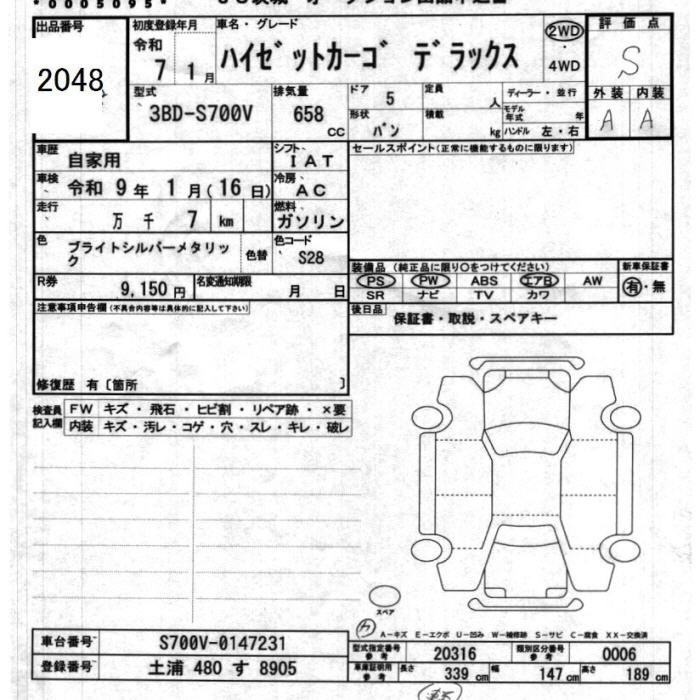 *0005095*
出品番号
2048
初度登録年月
令和
7 1 月
車名・グレード
ハイゼットカーゴ デラックス
2WD
4WD
評価点
S
外装 内装
A A
型式
3BD-S700V
排気量
658
CC
ドア 5
形状 バン
定員 人
積載 kg
ディーラー・並行
モデル年式 年
ハンドル 左・右
車歴 自家用
シフト IAT
車検 令和 9 年 1 月(16 日)
冷房 AC
走行 万 千 7 km
燃料 ガソリン
色 ブライトシルバーメタリック
色替
色コード S28
R券 9,150 円
名変通知期限 月 日
セールスポイント(正常に機能するものに限ります)
装備品(純正品に限り○をつけてください)
新車保証書
PS PW ABS エアB AW
SR ナビ TV カワ
有・無
後日品 保証書・取説・スペアキー
注意事項申告欄(不具合内容等は具体的に記入して下さい)
修復歴 有〔箇所 〕
検査員記入欄
FW キズ・飛石・ヒビ割・リペア跡・×要
内装 キズ・汚レ・コゲ・穴・スレ・キレ・破レ
スペア
A-キズ E-エクボ U-凹み W-補修跡 S-サビ C-腐食 XX-交換済
車台番号 S700V-0147231
登録番号 土浦 480 す 8905
型式指定番号 参考 20316
類別区分番号 参考 0006
車庫証明用 参考 長さ 339 cm 幅 147 cm 高さ 189 cm